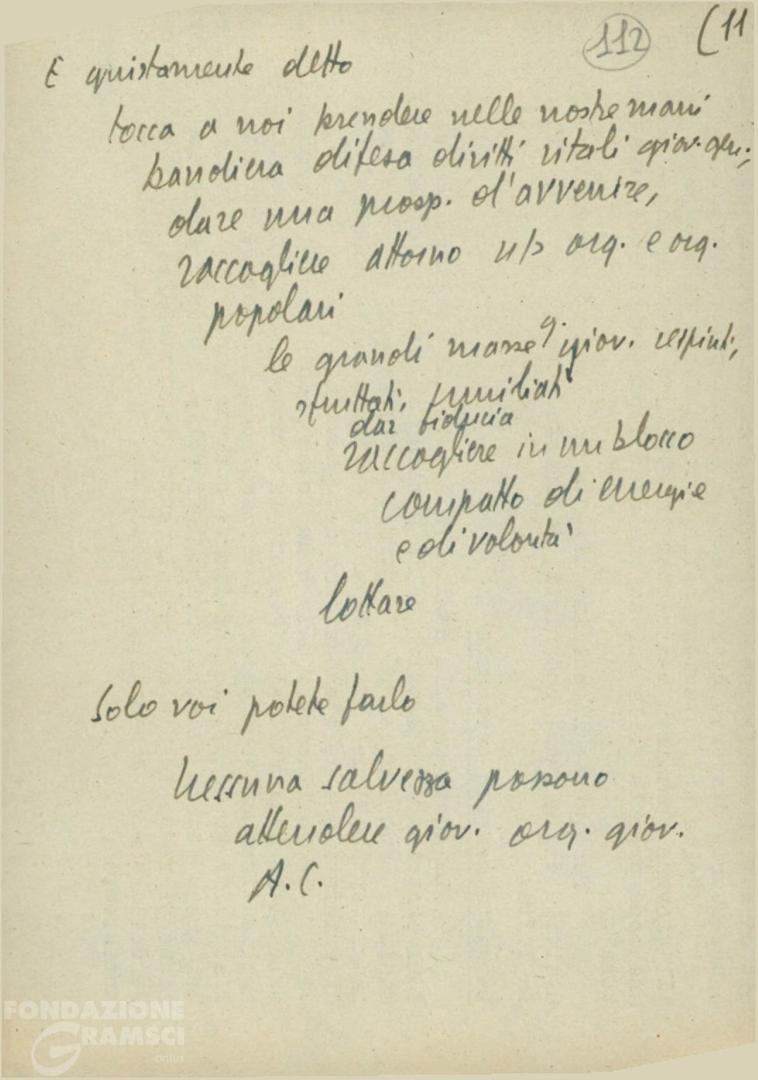 112 (11
E giustamente detto
tocca a noi prendere nelle nostre mani
bandiera difesa diritti vitali giov. gen.;
dare una prosp. d'avvenire,
raccogliere attorno n/s org. e org.
popolari
le grandi masse g. giov. respinti,
sfruttati, umiliati
dar fiducia
raccogliere in un blocco
compatto di energie
e di volontà
lottare
Solo voi potete farlo
Nessuna salvezza possono
attendere giov. org. giov.
A.C.
FONDAZIONE
GRAMSCI
onlus